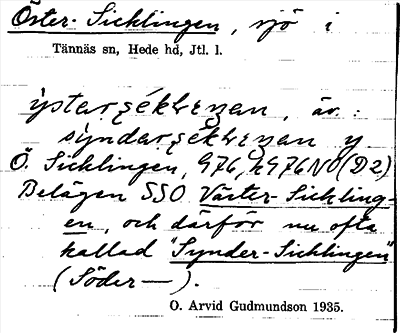 Öster-Sicklingen, sjö i
Tännäs sn, Hede hd, Jtl. l.
ÿstarsékliŋan, äv.:
syndarsékliŋan y
Ö. Sicklingen, G76, K976NO (D2)
Belägen SSO Väster-Sickling-
en, och därför nu ofta
kallad "Synder-Sicklingen"
(Söder—).
O. Arvid Gudmundson 1935.